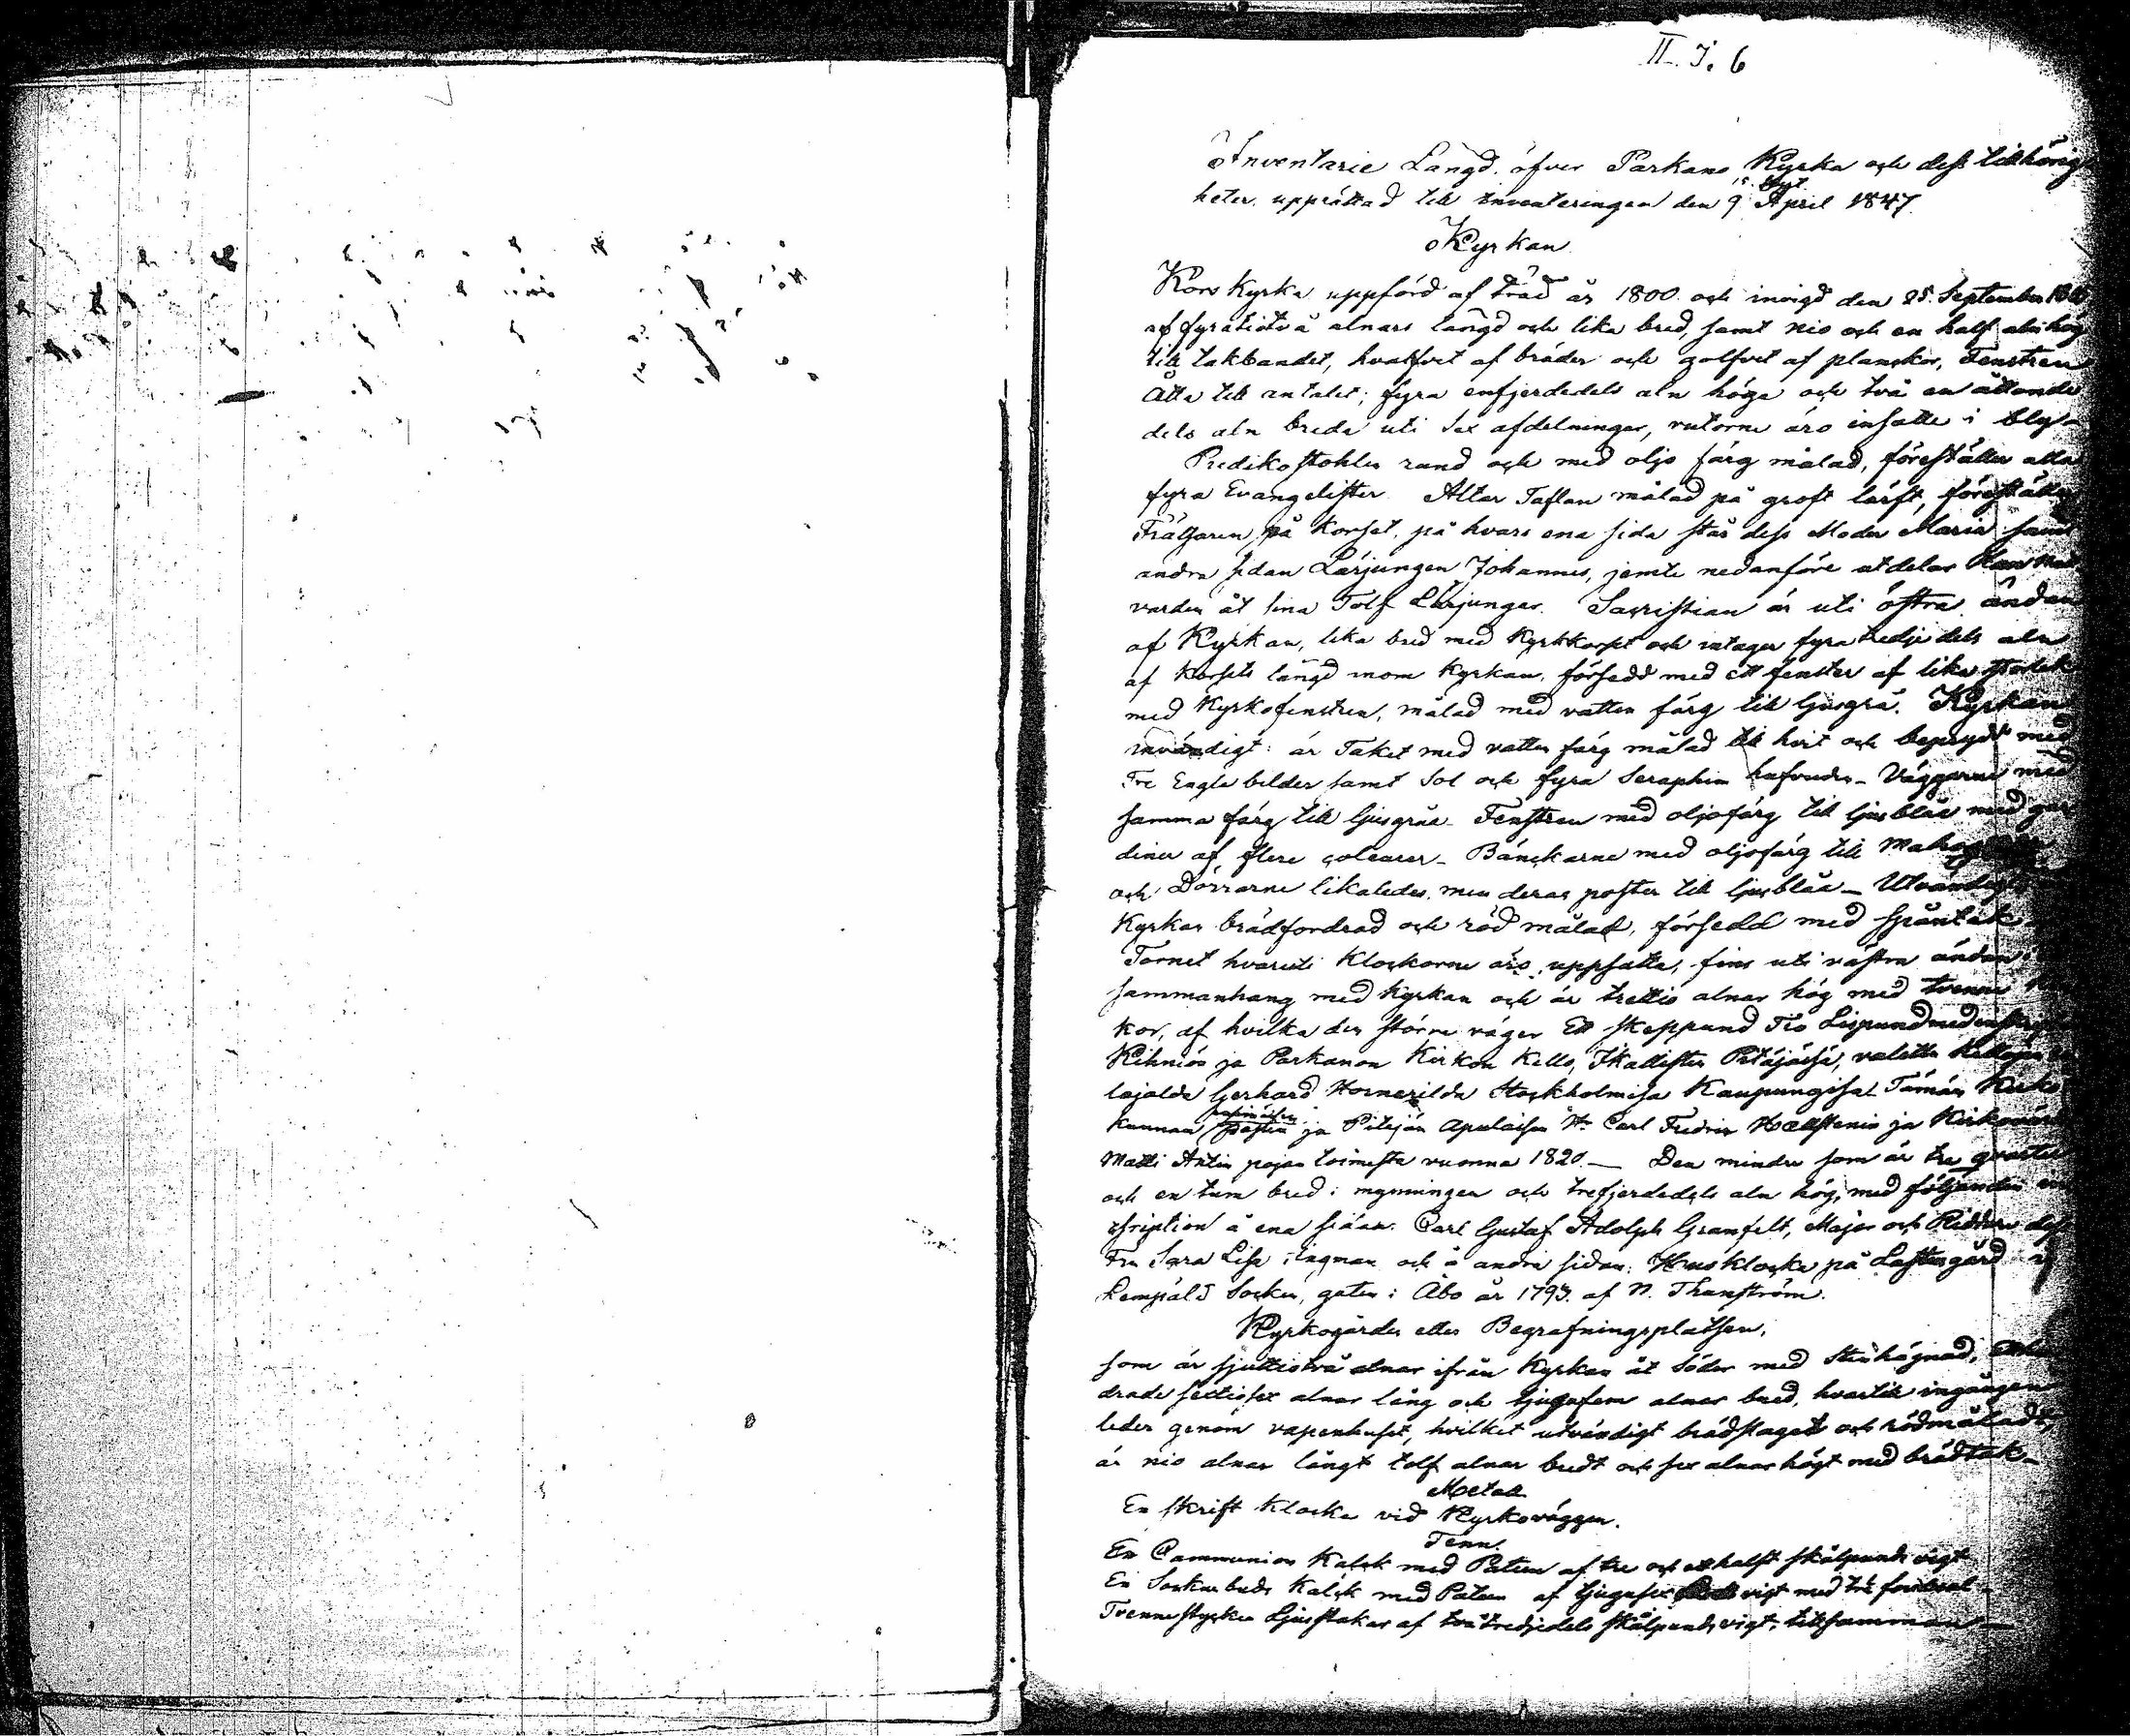 II. J. 6
Inventarie Längd öfver Parkano Kyrka och dess tillhörig
heter, upprättad till inventeringen den 9 April 1847.
Kyrkan
Kors Kyrka uppförd af träd år 1800 och invigd den 25. September
af fyratiotvå alnars längd och lika bred, samt nio och en half aln hög
till takbandet, hvalfvet af bräder och golfvet af planckor, Fenstren
Åtta till antalet; fyra enfjerdedels aln höga och två en åttonde
dels aln breda uti sex afdelningar, rutorne äro insatte i bly-
Predikostohlen rund och med oljo färg målad, föreställer alla
fyra Evangelister. Altar Taflan målad på groft lärft, föreställer
Frälsaren på Korset, på hvars ena sida står dess Moder Maria samt
andra sidan Lärjungen Johannes, jemte nedanföre utdelar Han
varden åt sina Tolf Lärjungar. Sacristian är uti östra ändan
af Kyrkan, lika bred med Kyrkkorset och intager fyra tredjedels aln
af Korsets längd inom Kyrkan, försedd med ett fenster af lika storlek
med Kyrkofenstren, målad med vatten färg till ljusgrå. Kyrkan
invändigt: är Taket med vatten färg målad till hvit och beprydt med
Tre Engla bilder samt Sol och fyra Seraphim hufvuden- Väggarne med
samma färg till ljusgråa- Fenstren med oljofärg till ljusblåa med gar
diner af flere coleurer- Bänckarne med oljofärg till
och Dörrarne likaledes, men deras poster till ljusblåa- Utvändigt
Kyrkan brädfordrad och röd målad, försedd med spåntak
Tornet hvaruti Klockorne äro uppsatta, fins uti västra ändan i
sammanhang med Kyrkan och är trettio alnar hög med tvenne
kor, af hvilka den större väger Ett skeppund Tio Lispund med
Kihniös ja Parkanon Kirkon Kello, Ikalisten Pitäjäsä, valettu
lajalda Gerhard Hornerilda Stockholmisa Kaupungisa. Tämän Kirko
kunnan ja Pitäjän Apulaisen Hr Carl Fredric Hællstenis ja
Matti Antin pojan toimesta vuonna 1820.— Den mindre som är tre qvarter
och en tum bred i mynningen och trefjerdedels aln hög, med följande in
skription å ena sidan: Carl Gustaf Adolph Granfelt, Major och Riddare dess
Fru Sara Lisa Ingman och å andra sidan: Husklocka på Lastusgård i
Lempälä Socken, guten i Åbo år 1793. af N. Thunström.
Kyrkogården eller Begrafningsplatsen,
som är sjuttiotvå alnar ifrån Kyrkan åt Söder med Stenhägnad,
drade sextiosex alnar lång och tjugufem alnar bred, hvartill ingången
leder genom vapenhuset, hvilket utvändigt brädslaget och rödmåladt,
är nio alnar långt tolf alnar bredt och sex alnar högt med brädtak-
Metall
En skrift Klocka vid Kyrkoväggen.
Tenn.
En Communion Kalck med Paten af tre och ett halft skålpunds vigt
En Sockenbuds Kalck med Paten af tjugusex vigt med trä fouteral-
Tvenne stycken Ljusstakar af två tredjedels skålpunds vigt, tillsamman—